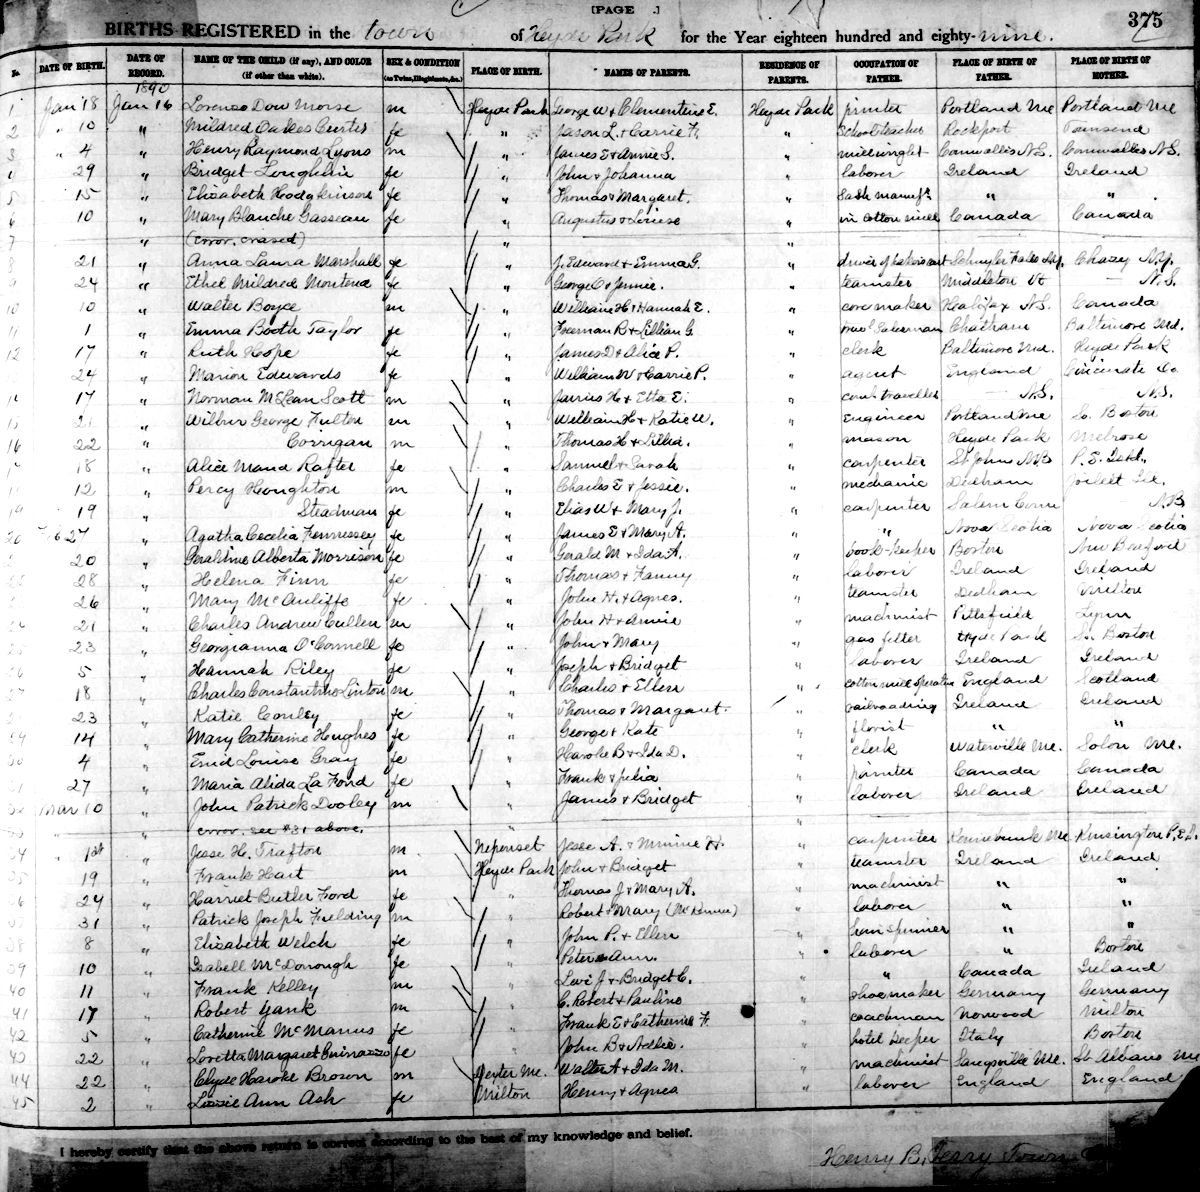 [PAGE .]
375
BIRTHS REGISTERED in the town of Hyde Park for the Year eighteen hundred and eighty-nine.
No. DATE OF BIRTH. DATE OF RECORD. NAME OF THE CHILD (if any), AND COLOR (if other than white). SEX & CONDITION (as Twins, Illegitimate, &c.) PLACE OF BIRTH. NAMES OF PARENTS. RESIDENCE OF PARENTS. OCCUPATION OF FATHER. PLACE OF BIRTH OF FATHER. PLACE OF BIRTH OF MOTHER.
1890
1 Jan 18 Jan 16 Lorenzo Dow Morse m Hyde Park George W & Clementine E. Hyde Park printer Portland Me Portland Me
2 " 10 " Mildred Oakes Curtis fe " Jason L. & Carrie F. " School teacher Rockport Townsend
3 " 4 " Henry Raymond Lyons m " James E & Annie S. " millwright Cornwallis N.S. Cornwallis N.S.
29 " Bridget Loughlin fe " John & Johanna " laborer Ireland Ireland
5 15 " Elizabeth Hodgkinson fe " Thomas & Margaret. " Sash manuf'r " "
6 10 " Mary Blanche Gasseau fe " Augustus & Louise " in cotton mill Canada Canada
7 " (error, erased) " "
8 21 " Anna Laura Marshall fe " J. Edward & Emma G. " Schuyler Falls Chazy N.Y.
24 " Ethel Mildred fe " George O & Jennie. " teamster Middleton Vt — N.S.
10 10 " Walter Boyce m " William H & Hannah E. " core maker Halifax N.S. Canada
11 1 " Emma Booth Taylor fe " Freeman B & Lillian G. " Chatham Baltimore Md.
12 17 " Ruth Hope fe " James D & Alice P. " clerk Baltimore Md. Hyde Park
24 " Marion Edwards fe " William W & Carrie P. " agent England
17 " Norman McLean Scott m " James H & Etta E. " — N.S. N.S.
15 21 " Wilbur George Fulton m " William H & Katie W. " Engineer Portland Me So. Boston
16 22 " Corrigan m " Thomas H & Lillia. " mason Hyde Park Melrose
18 " Alice Maud Rafter fe " Samuel & Sarah " carpenter St Johns N.B P. E. Isld.
12 " Percy Houghton m " Charles E & Jessie. " mechanic Dedham Joilett Ill.
19 19 " Steadman fe " Elias W & Mary J. " carpenter Salem Conn — N.B
20 Feb 27 " Agatha Cecelia Fennessey fe " James E & Mary A. " " Nova Scotia Nova Scotia
20 " Geraldine Alberta Morrison fe " Gerald M & Ida A. " book-keeper Boston New Bedford
28 " Helena Finn fe " Thomas & Fanny " laborer Ireland Ireland
26 " Mary McAuliffe fe " John H. & Agnes. " teamster Dedham
24 21 " Charles Andrew Cullen m " John H & Annie " machinist Pittsfield Lynn
25 23 " Georgianna O'Connell fe " John & Mary " gas fitter Hyde Park So. Boston
26 5 " Hannah Riley fe " Joseph & Bridget " laborer Ireland Ireland
27 18 " Charles Constantine Linton m " Charles & Ellen " cotton mill operative England Scotland
23 " Katie Conley fe " Thomas & Margaret. " railroading Ireland Ireland
29 14 " Mary Catherine Hughes fe " George & Kate " florist " "
30 4 " Enid Louise Gray fe " Harold B & Ida D. " clerk Waterville Me. Solon Me.
31 27 " Maria Alida La Fond fe " Frank & Julia " printer Canada Canada
32 Mar 10 " John Patrick Dooley m " James & Bridget " laborer Ireland Ireland
33 " " error, see #31 above.
34 " 1st " Jesse H. Trafton m Neponset Jesse A. & Minnie H. " carpenter Kennebunk Me. Kensington P.E.I.
35 19 " Frank Hart m Hyde Park John & Bridget " teamster Ireland Ireland
36 24 " Harriet Butler Ford fe " Thomas J & Mary A. " machinist " "
37 31 " Patrick Joseph Fielding m " Robert & Mary " laborer " "
38 8 " Elizabeth Welch fe " John P. & Ellen " " "
39 10 " Isabell McDonough fe " Peter & Ann. " laborer " Boston
40 11 " Frank Kelley m " Levi J & Bridget C. " " Canada Ireland
41 17 " Robert Yank m " C. Robert & Pauline " shoemaker Germany Germany
42 5 " Catherine McManus fe " Frank E & Catherine F. " coachman Norwood Milton
43 22 " Loretta Margaret fe " John B & Adlie. " hotel keeper Italy Boston
44 22 " Clyde Harold Brown m Dexter Me. Walter A & Ida M. " machinist Sangerville Me. St Albans Me
45 2 " Lizzie Ann Ash fe Milton Henry & Agnes " laborer England England
I hereby certify that the above return is correct according to the best of my knowledge and belief.
Henry B. Terry Town